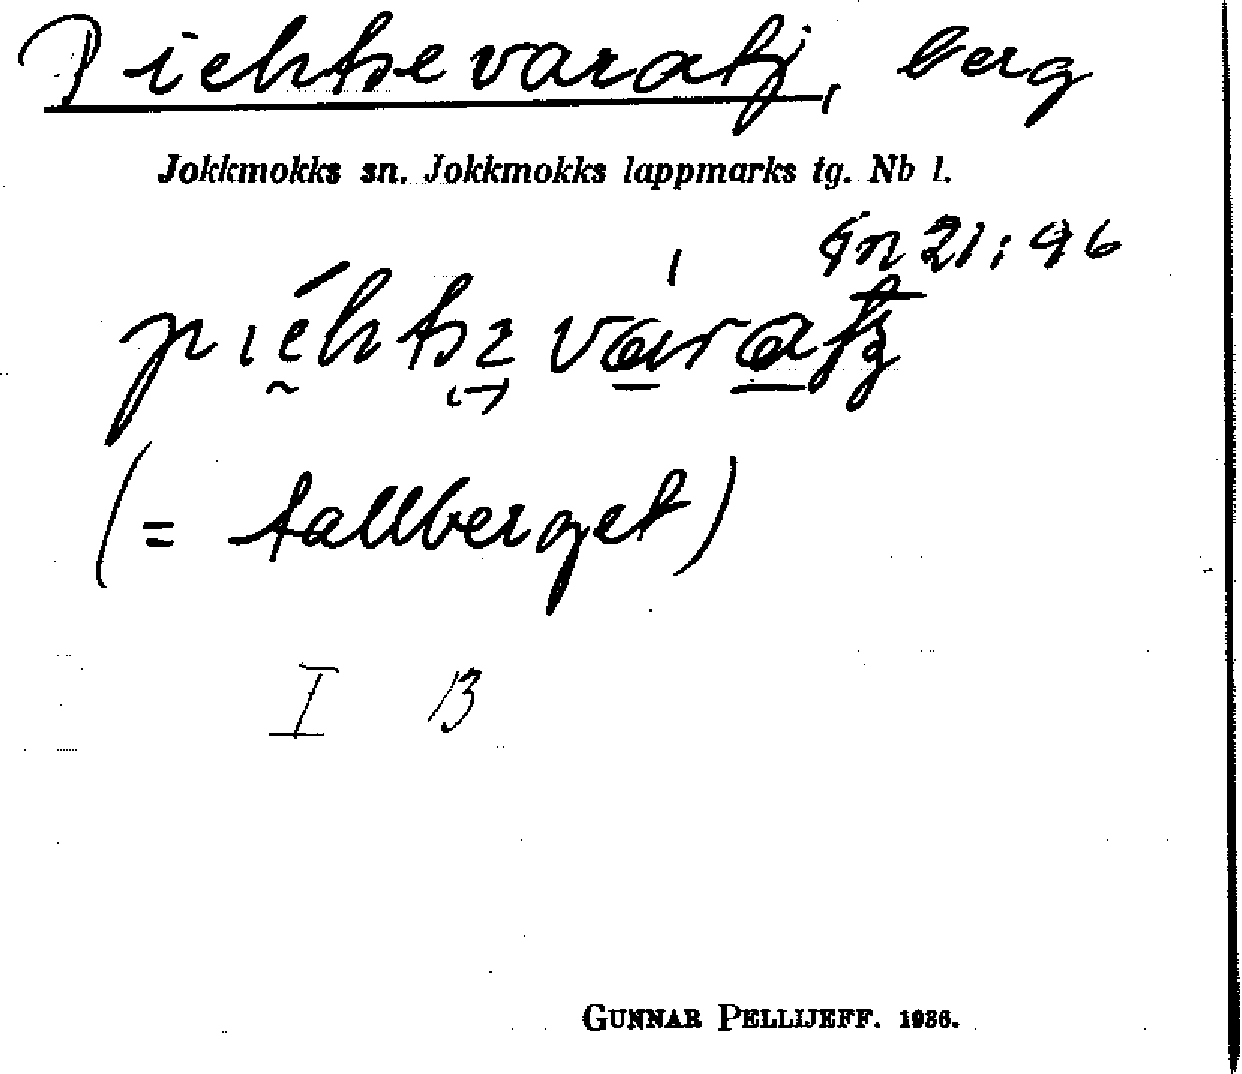 Piehtsevaratj, berg
Jokkmokks sn. Jokkmokks lappmarks tg. Nb l.
Gn 21:96
(= tallberget)
I B
GUNNAR PELLIJEFF. 1936.